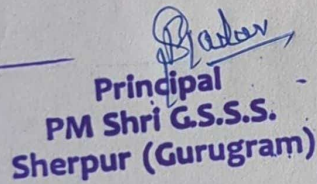 Principal
PM Shri G.S.S.S.
Sherpur (Gurugram)